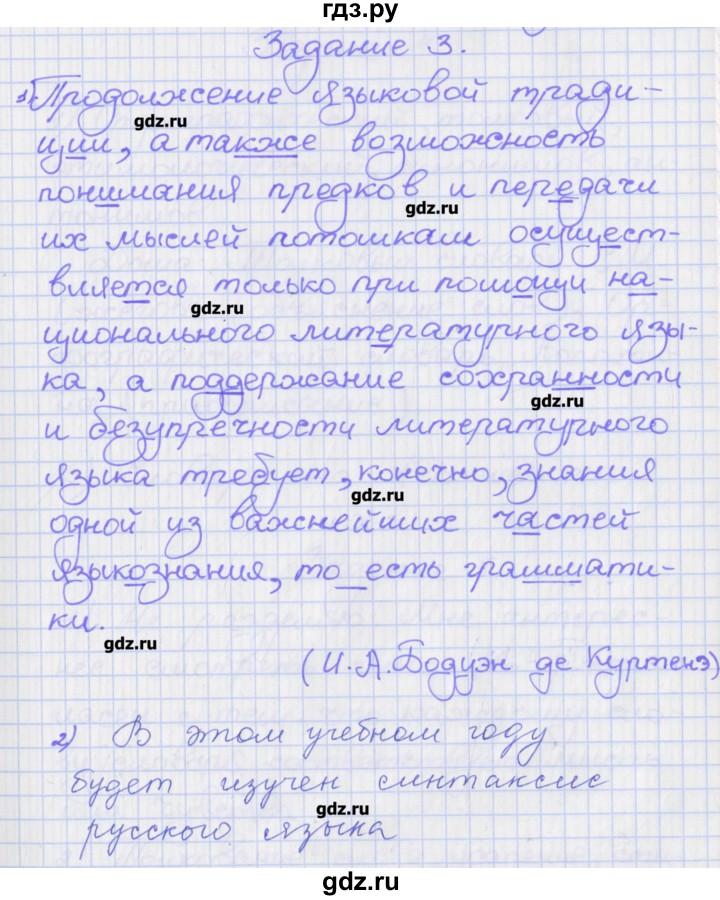 гдз.ру
Задание 3.
1) Продолжение языковой тради-
gdz.ru
ции, а также возможность
понимания предков и передачи
gdz.ru
их мыслей потомкам осущест-
вляется только при помощи на-
gdz.ru
ционального литературного язы-
ка, а поддержание сохранности
gdz.ru
и безупречности литературного
языка требует, конечно, знания
gdz.ru
одной из важнейших частей
языкознания, то есть граммати-
ки.
gdz.ru
(И.А.Бодуэн де Куртенэ)
2) В этом учебном году
будет изучен синтаксис
gdz.ru
русского языка
gdz.ru